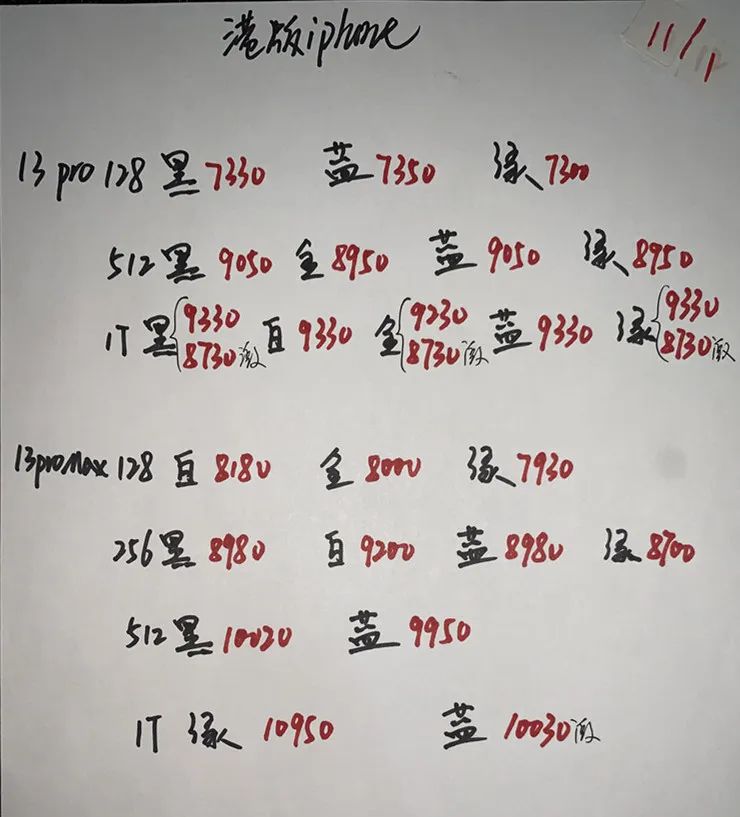 港版iphone
11/1
13 pro 128 黑 7330 蓝 7350 绿 7300
512 黑 9050 金 8950 蓝 9050 绿 8950
1T 黑 9330 8730激 白 9330 金 9230 8730激 蓝 9330 绿 9330 8730激
13promax 128 白 8180 金 8000 绿 7930
256 黑 8980 白 9200 蓝 8980 绿 8700
512 黑 10020 蓝 9950
1T 绿 10950 蓝 10030激